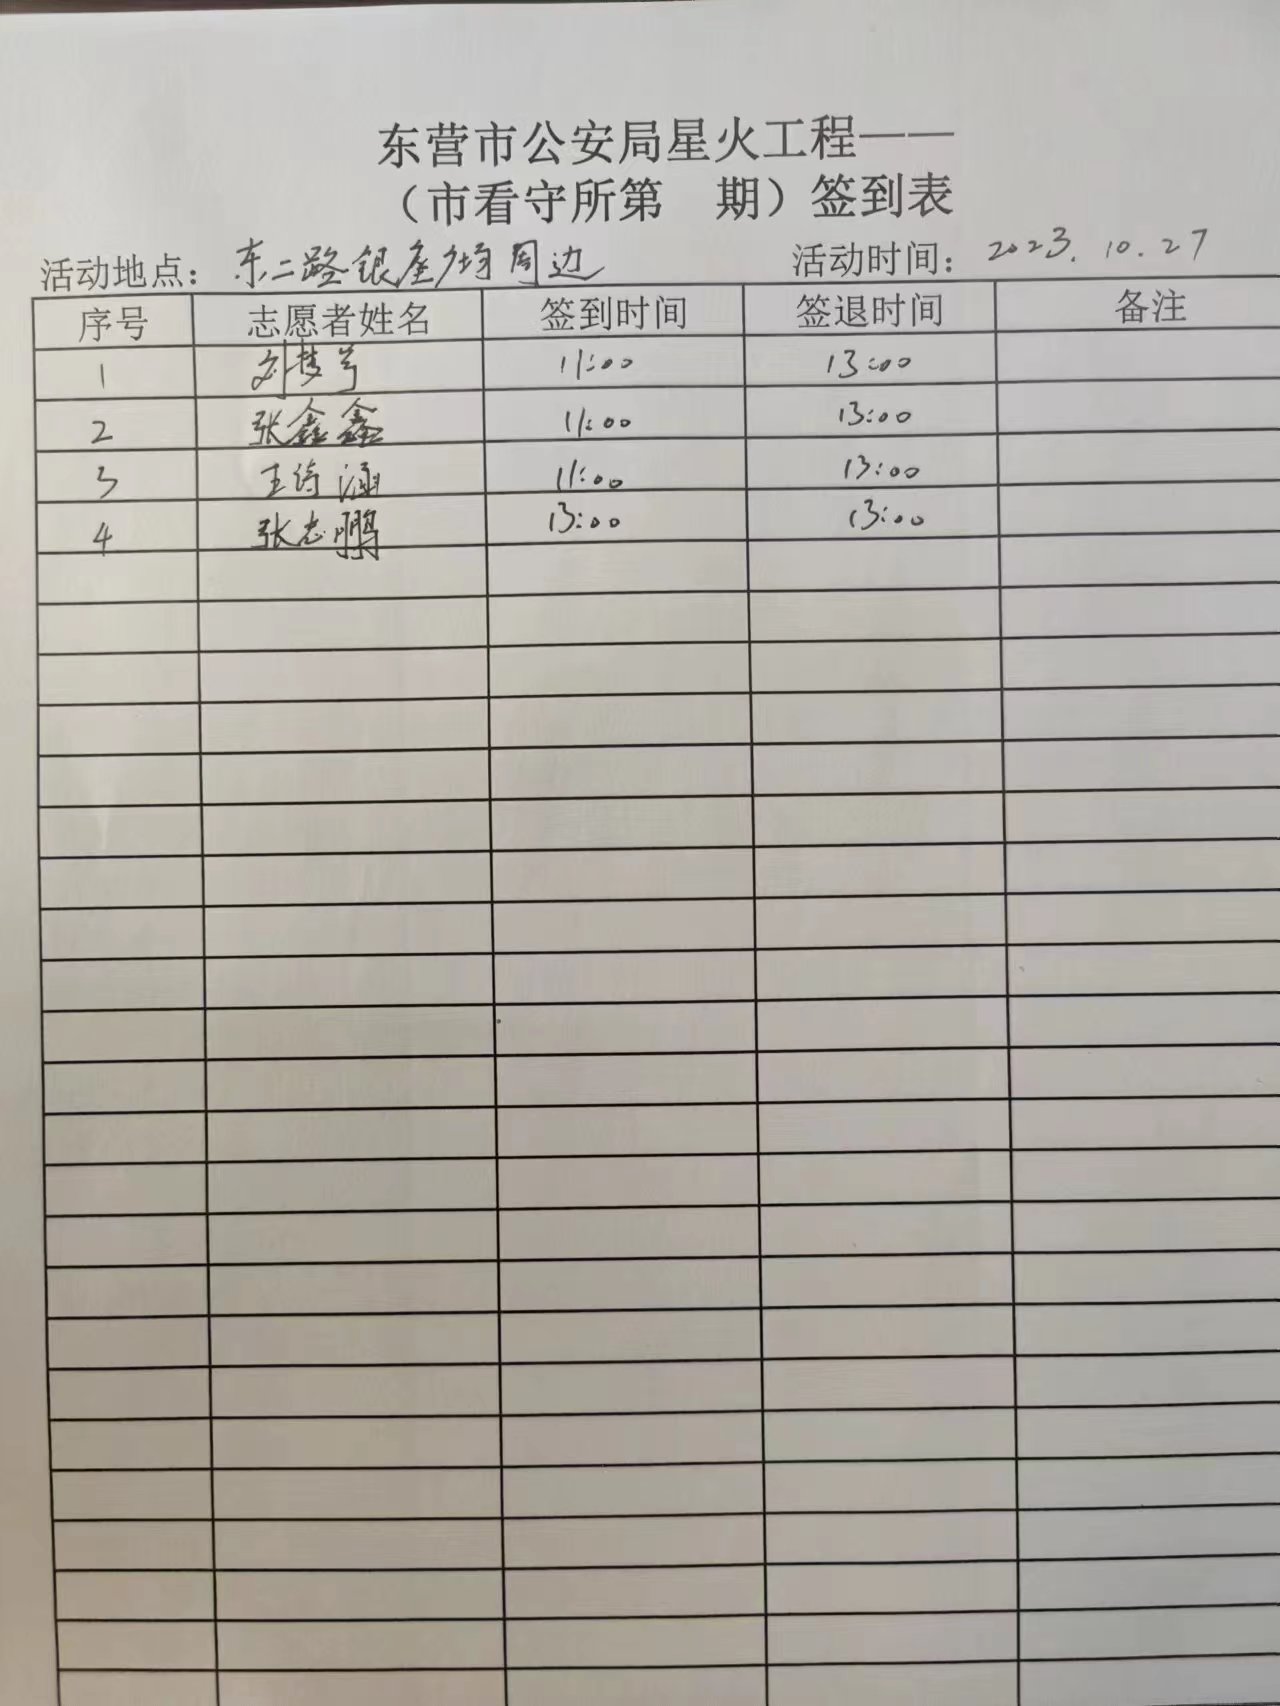 东营市公安局星火工程——
（市看守所第 期）签到表
活动地点：东二路银座广场周边 活动时间：2023.10.27
序号 志愿者姓名 签到时间 签退时间 备注
1 刘梦 11:00 13:00
2 张鑫鑫 11:00 13:00
3 王绮涵 11:00 13:00
4 张志鹏 13:00 13:00